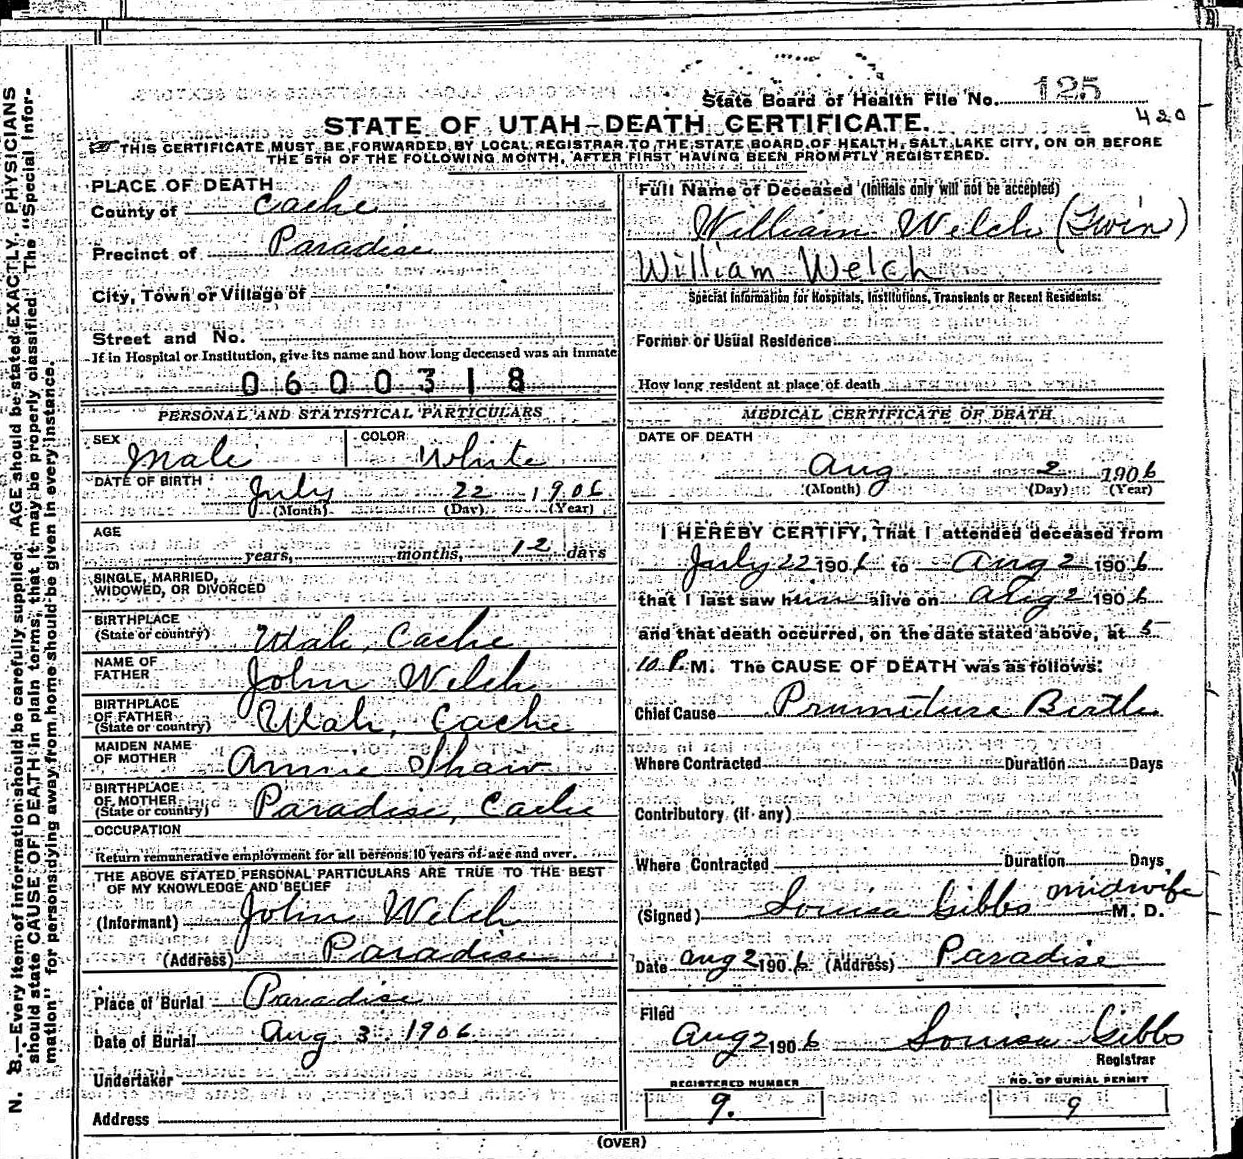 State Board of Health File No. 125
420
STATE OF UTAH–DEATH CERTIFICATE.
THIS CERTIFICATE MUST BE FORWARDED BY LOCAL REGISTRAR TO THE STATE BOARD OF HEALTH, SALT LAKE CITY, ON OR BEFORE
THE 5TH OF THE FOLLOWING MONTH, AFTER FIRST HAVING BEEN PROMPTLY REGISTERED.
PLACE OF DEATH
County of Cache
Precinct of Paradise
City, Town or Village of
Street and No.
If in Hospital or Institution, give its name and how long deceased was an inmate
0600318
PERSONAL AND STATISTICAL PARTICULARS
SEX Male COLOR White
DATE OF BIRTH July 22 1906
(Month) (Day) (Year)
AGE
years, months, 12 days
SINGLE, MARRIED,
WIDOWED, OR DIVORCED
BIRTHPLACE
(State or country) Utah, Cache
NAME OF
FATHER John Welch
BIRTHPLACE
OF FATHER
(State or country) Utah, Cache
MAIDEN NAME
OF MOTHER Annie Shaw
BIRTHPLACE
OF MOTHER
(State or country) Paradise, Cache
OCCUPATION
Return remunerative employment for all persons 10 years of age and over.
THE ABOVE STATED PERSONAL PARTICULARS ARE TRUE TO THE BEST
OF MY KNOWLEDGE AND BELIEF
(Informant) John Welch
(Address) Paradise
Place of Burial Paradise
Date of Burial Aug 3 1906
Undertaker
Address
Full Name of Deceased (Initials only will not be accepted)
William Welch (Twin)
William Welch
Special Information for Hospitals, Institutions, Transients or Recent Residents:
Former or Usual Residence
How long resident at place of death
MEDICAL CERTIFICATE OF DEATH
DATE OF DEATH
Aug 2 1906
(Month) (Day) (Year)
I HEREBY CERTIFY, That I attended deceased from
July 22 1906 to Aug 2 1906
that I last saw him alive on Aug 2 1906
and that death occurred, on the date stated above, at 5
10 P.M. The CAUSE OF DEATH was as follows:
Chief Cause Prumiture Birth
Where Contracted Duration Days
Contributory (if any)
Where Contracted Duration Days
midwife
(Signed) Louisa Gibbs M. D.
Date Aug 2 1906 (Address) Paradise
Filed
Aug 2 1906 Louisa Gibbs
Registrar
REGISTERED NUMBER
9.
NO. OF BURIAL PERMIT
9
(OVER)
N. B.—Every item of information should be carefully supplied. AGE should be stated EXACTLY. PHYSICIANS
should state CAUSE OF DEATH in plain terms, that it may be properly classified. The "Special Infor-
mation" for persons dying away from home should be given in every instance.